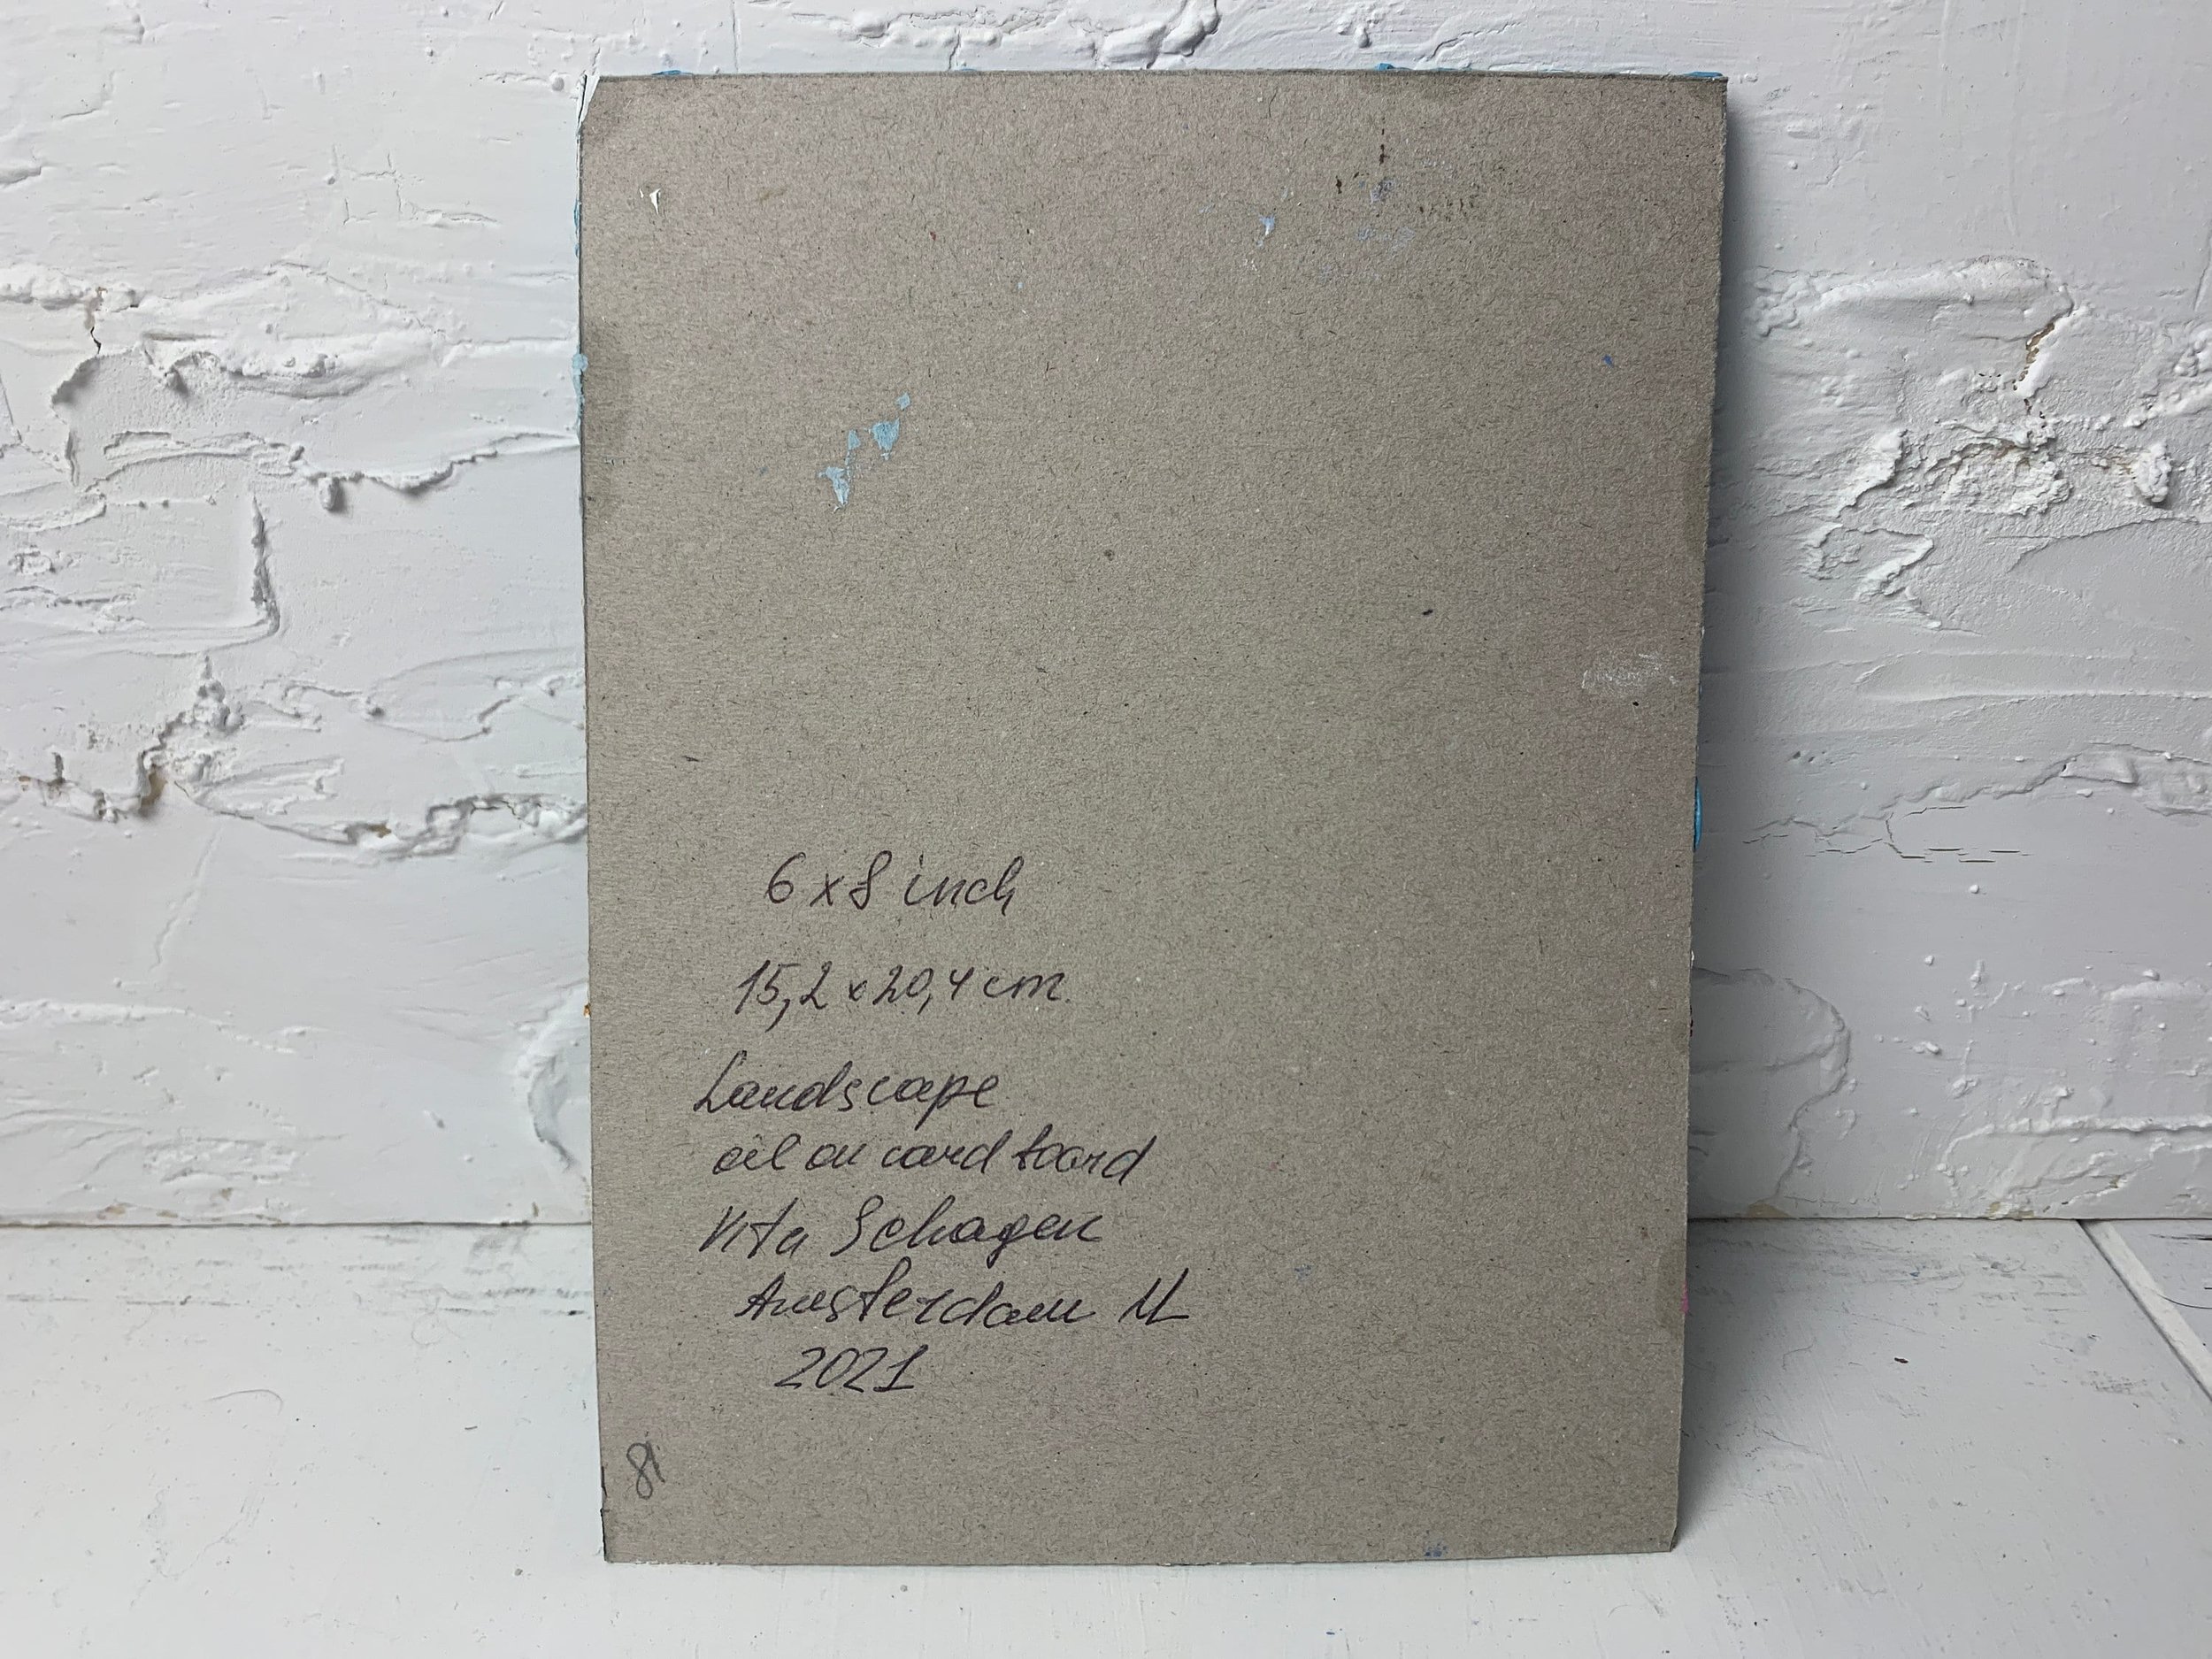 6 x 8 inch
15,2 x 20,4 cm
Landscape
oil on cardboard
Vita Schagen
Amsterdam NL
2021
81